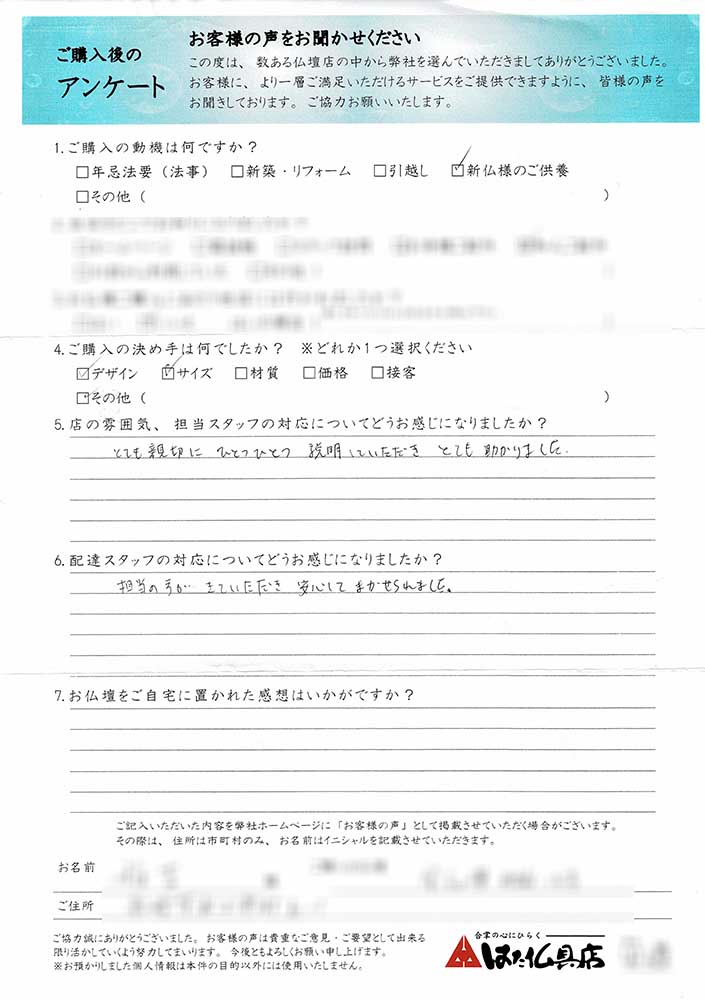 ご購入後の
アンケート
お客様の声をお聞かせください
この度は、数ある仏壇店の中から弊社を選んでいただきましてありがとうございました。
お客様に、より一層ご満足いただけるサービスをご提供できますように、皆様の声を
お聞きしております。ご協力お願いいたします。
1.ご購入の動機は何ですか？
□年忌法要（法事） □新築・リフォーム □引越し ☑新仏様のご供養
□その他（ ）
4.ご購入の決め手は何でしたか？ ※どれか1つ選択ください
☑デザイン ☑サイズ □材質 □価格 □接客
□その他（ ）
5.店の雰囲気、担当スタッフの対応についてどうお感じになりましたか？
とても親切に ひとつひとつ 説明していただき とても助かりました.
6.配達スタッフの対応についてどうお感じになりましたか？
担当の方が きていただき 安心して まかせられました。
7.お仏壇をご自宅に置かれた感想はいかがですか？
ご記入いただいた内容を弊社ホームページに「お客様の声」として掲載させていただく場合がございます。
その際は、住所は市町村のみ、お名前はイニシャルを記載させていただきます。
お名前
ご住所
ご協力誠にありがとうございました。お客様の声は貴重なご意見・ご要望として出来る
限り活かしていくよう努力してまいります。今後ともよろしくお願い申し上げます。
※お預かりしました個人情報は本件の目的以外には使用いたしません。
合掌の心にひらく
はた仏具店